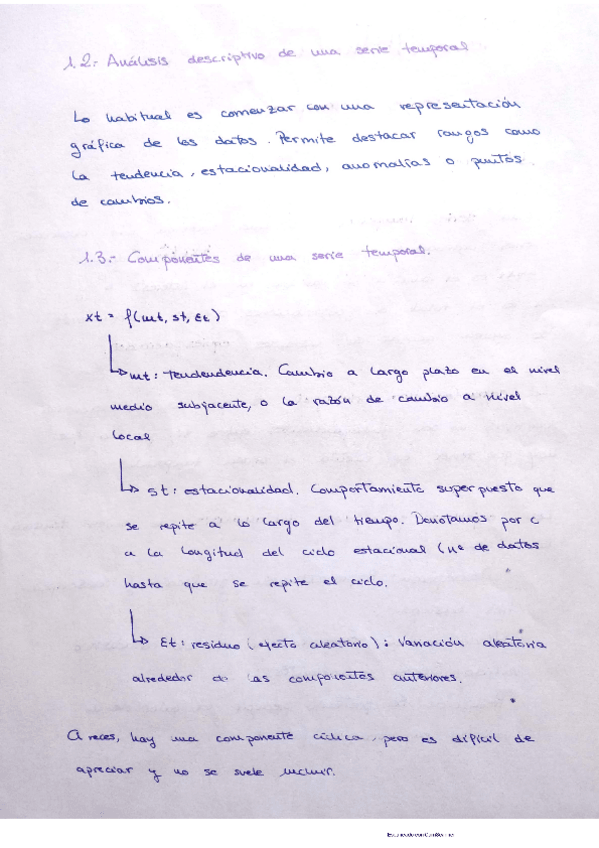 1.2.- Análisis descriptivo de una serie temporal
Lo habitual es comenzar con una representación
gráfica de los datos. Permite destacar rangos como
la tendencia, estacionalidad, anomalías o puntos
de cambios.
1.3.- Componentes de una serie temporal.
xt = f(mt, st, εt)
mt: tendendencia. Cambio a largo plazo en el nivel
medio subjacente, o la razón de cambio a nivel
local
st: estacionalidad. Comportamiento superpuesto que
se repite a lo largo del tiempo. Denotamos por c
a la longitud del ciclo estacional (nº de datos
hasta que se repite el ciclo.
εt: residuo (efecto aleatorio): Variación aleatoria
alrededor de las componentes anteriores.
A veces, hay una componente cíclica, pero es difícil de
apreciar y no se suele incluir.
Escaneado con CamScanner